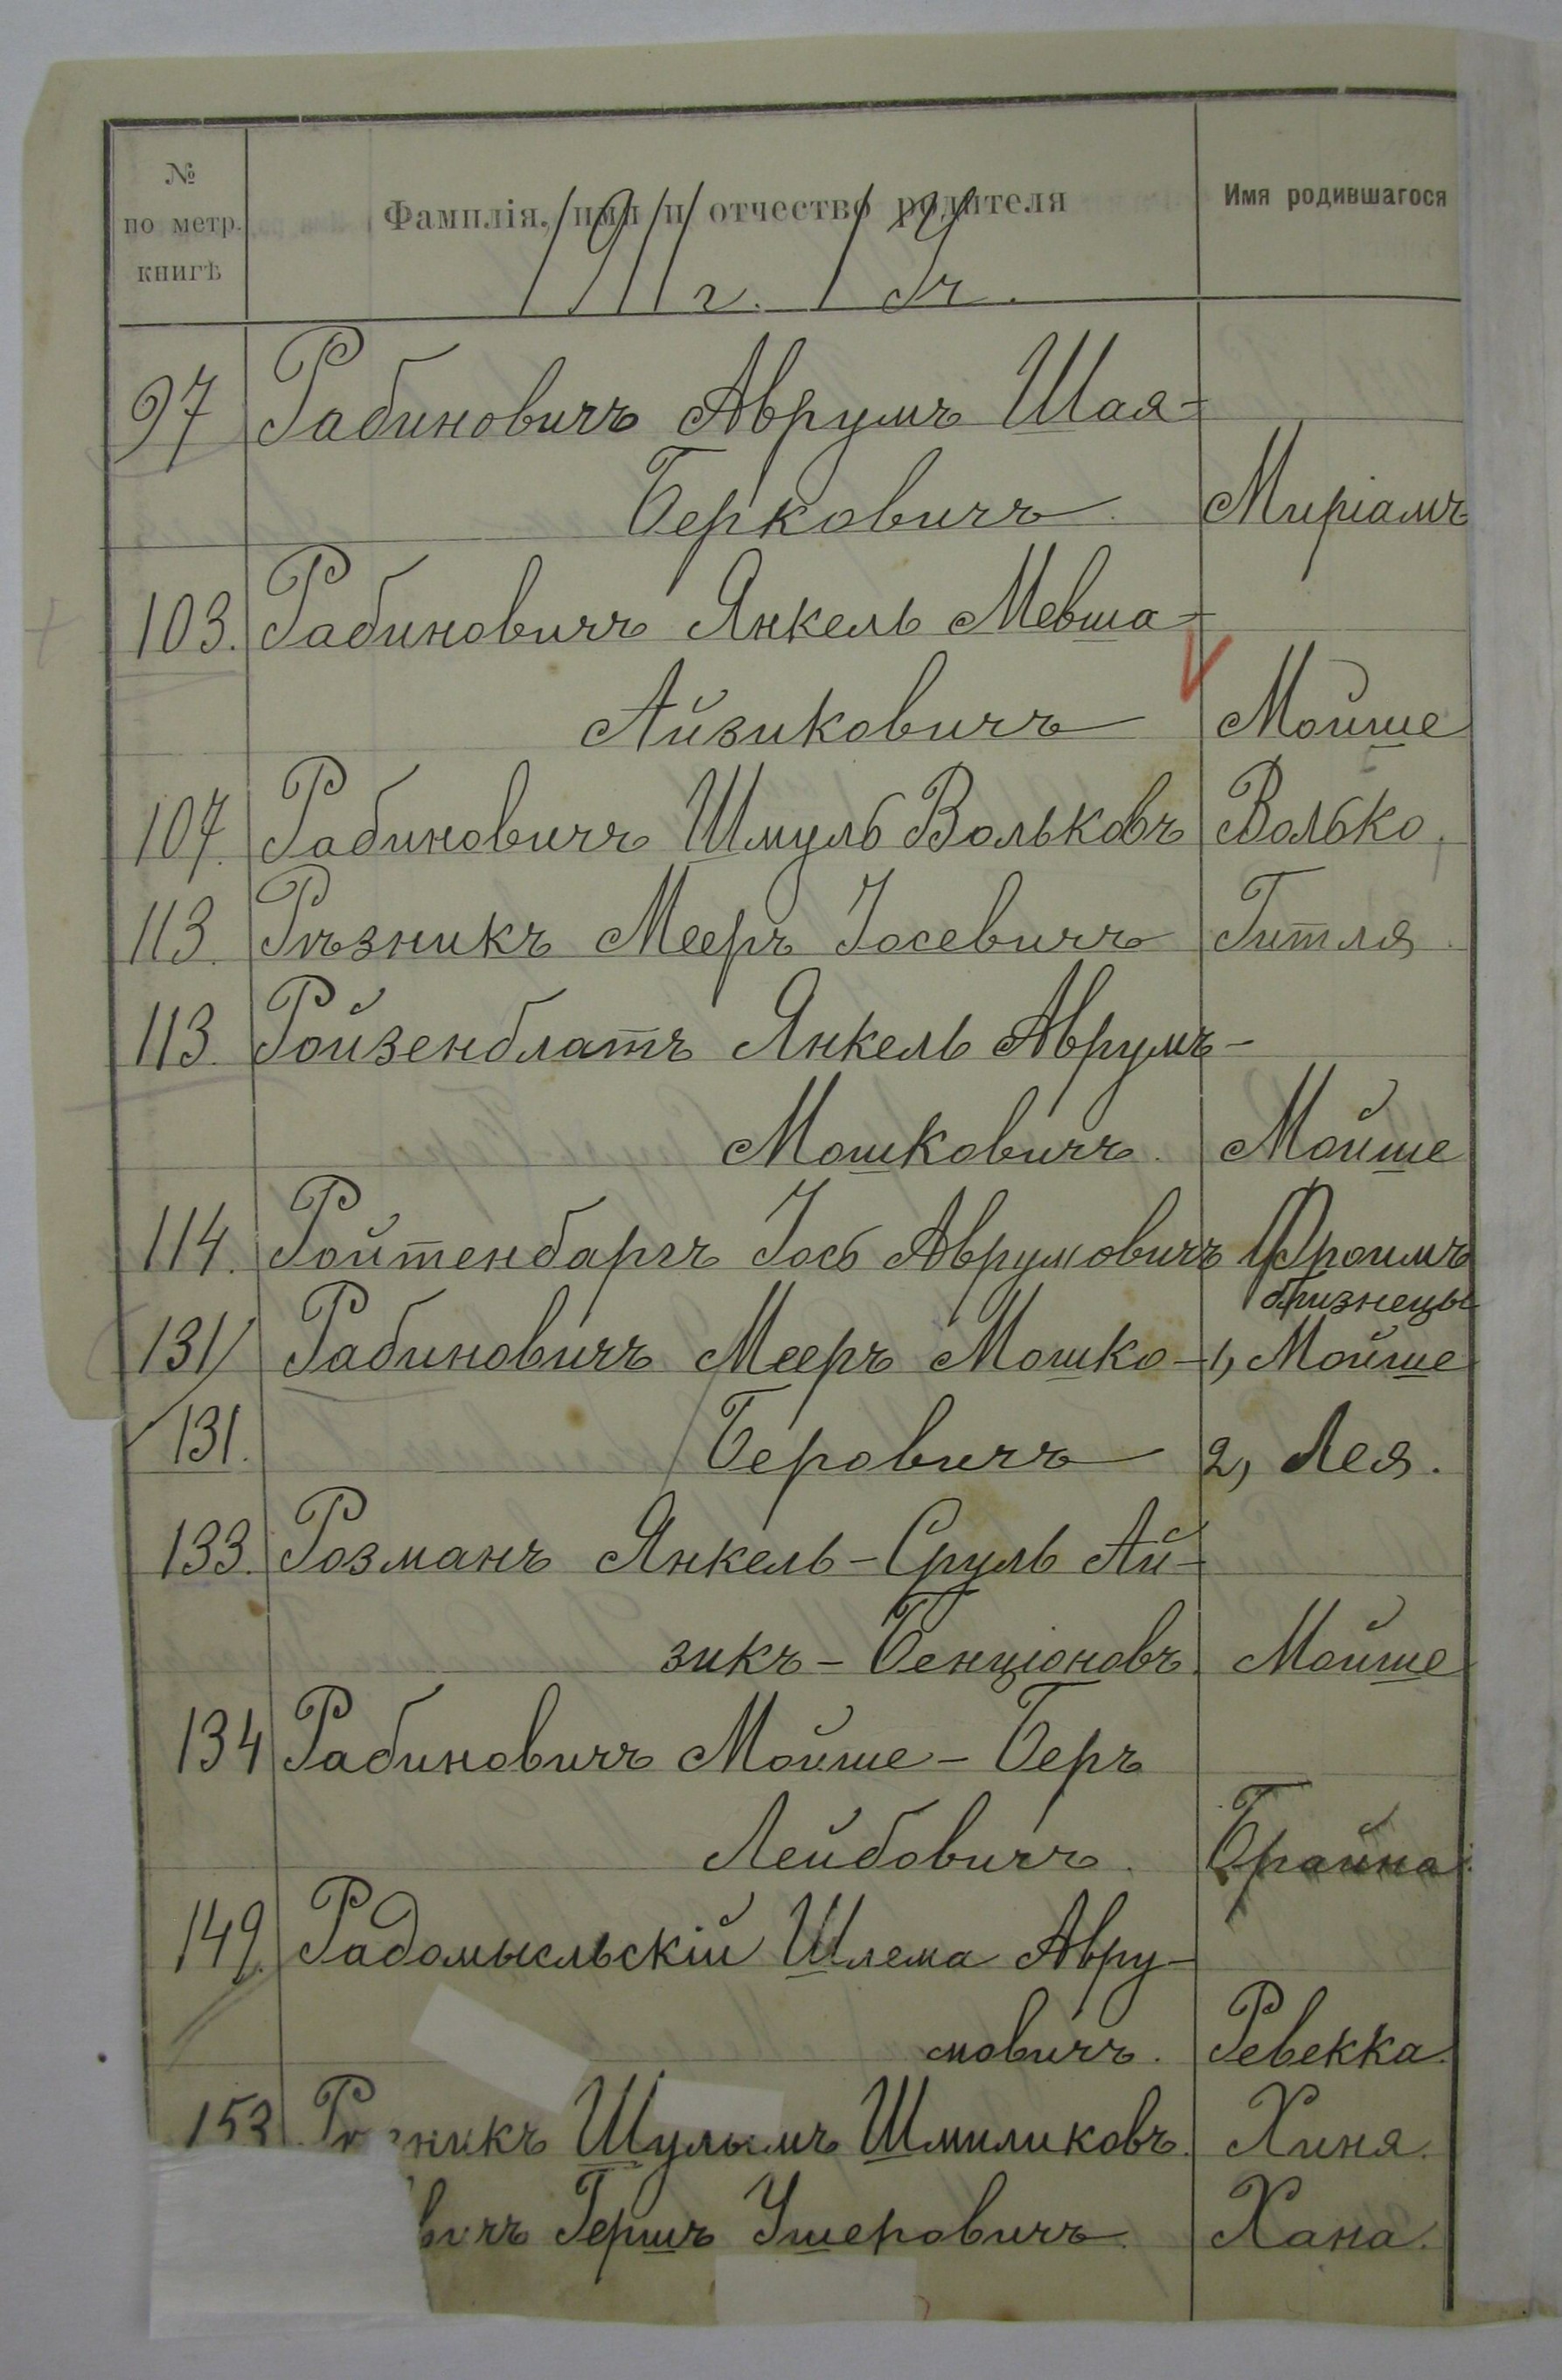 № по метр. книгѣ
Фамилія, имя и отчество родителя
Имя родившагося
1911 г.
97 Рабиновичъ Аврумъ Шая-
Берковичъ. Миріамъ
103. Рабиновичъ Янкель Мевша-
Айзиковичъ Мойше
107. Рабиновичъ Шмуль Вольковъ Волько.
113. Рѣзникъ Мееръ Іосевичъ Гитля.
113. Ройзенблатъ Янкель Аврумъ-
Мошковичъ. Мойше
114. Ройтенбаргъ Іось Аврумовичъ Фроимъ
близнецы
131 Рабиновичъ Мееръ Мошко- 1, Мойше
131. Беровичъ 2, Лея.
133. Розманъ Янкель-Сруль Ай-
зикъ-Бенціоновъ. Мойше
134 Рабиновичъ Мойше-Беръ
Лейбовичъ. Брайна.
149. Радомысльскій Шлема Авру-
мовичъ. Ревекка.
153 Рѣзникъ Шулимъ Шмиликовъ. Хиня.
вичъ Гершъ Ушеровичъ. Хана.